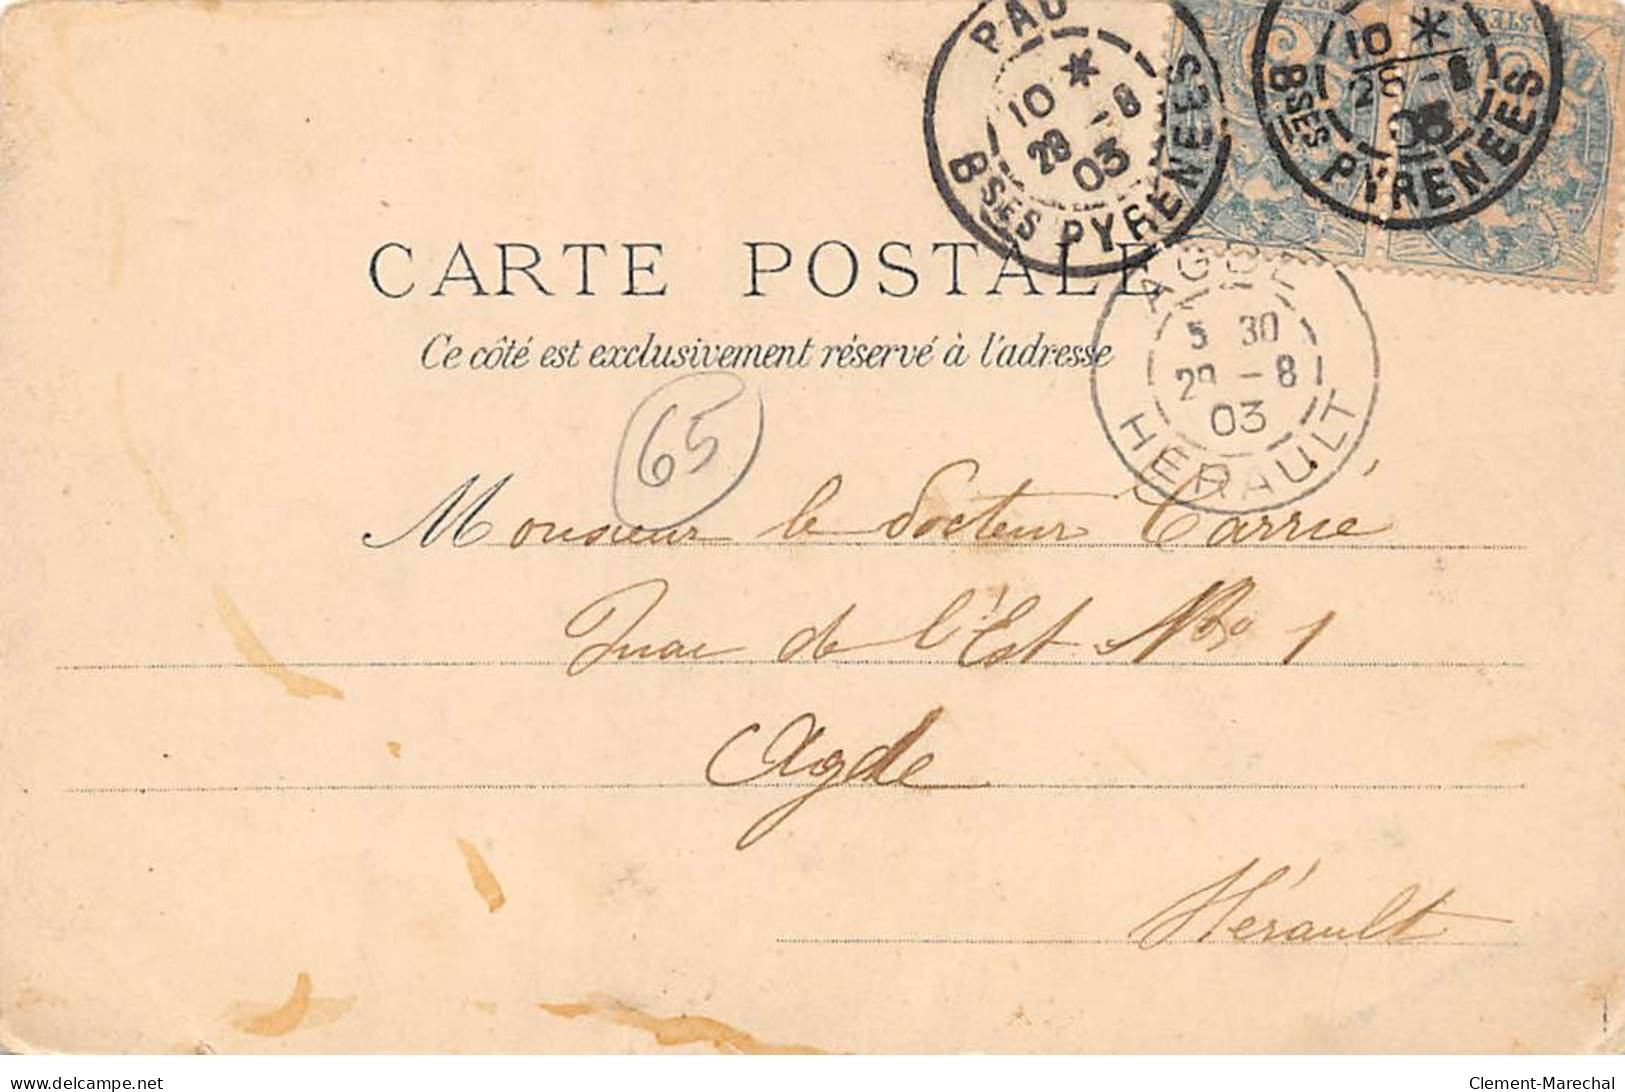 PAU
10 *
28 -8
03
Bses PYRENEES
10 *
-8
Bses PYRENEES
CARTE POSTALE
Ce côté est exclusivement réservé à l'adresse
AGDE
5 30
29 -8
03
HERAULT
65
Monsieur le Docteur Carrié
de l'Est No 1
Agde
Hérault
delcampe.net
Clement-Marechal